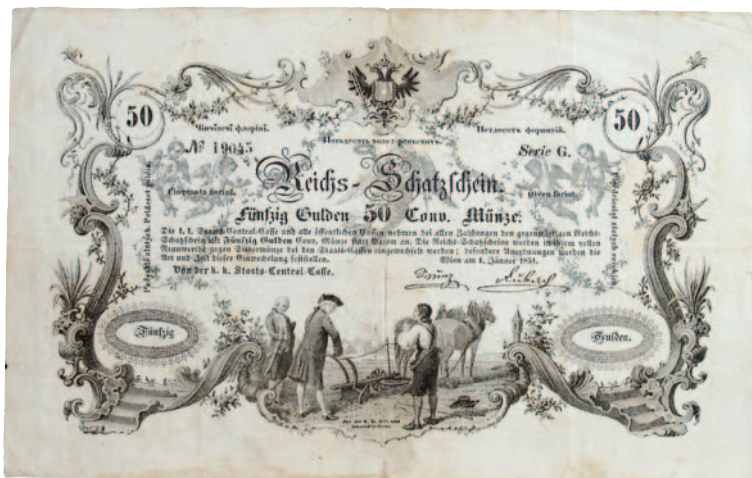 50
50
Петдесетъ форинтій.
№ 19045
Serie G.
Reichs-Schatzschein.
Fünfzig Gulden 50 Conv. Münze.
Die k. k. Staats-Central-Casse und alle öffentlichen Cassen nehmen bei allen Zahlungen den gegenwärtigen Reichs-
Schatzschein als Fünfzig Gulden Conv. Münze statt Barem an. Die Reichs-Schatzscheine werden in ihrem vollen
Nennwerthe gegen Silbermünze bei den Staats-Cassen eingewechselt werden; besondere Anordnungen werden die
Art und Zeit dieser Einwechselung feststellen.
Wien am 1. Jänner 1851.
Von der k. k. Staats-Central-Casse.
Fünfzig
Gulden.